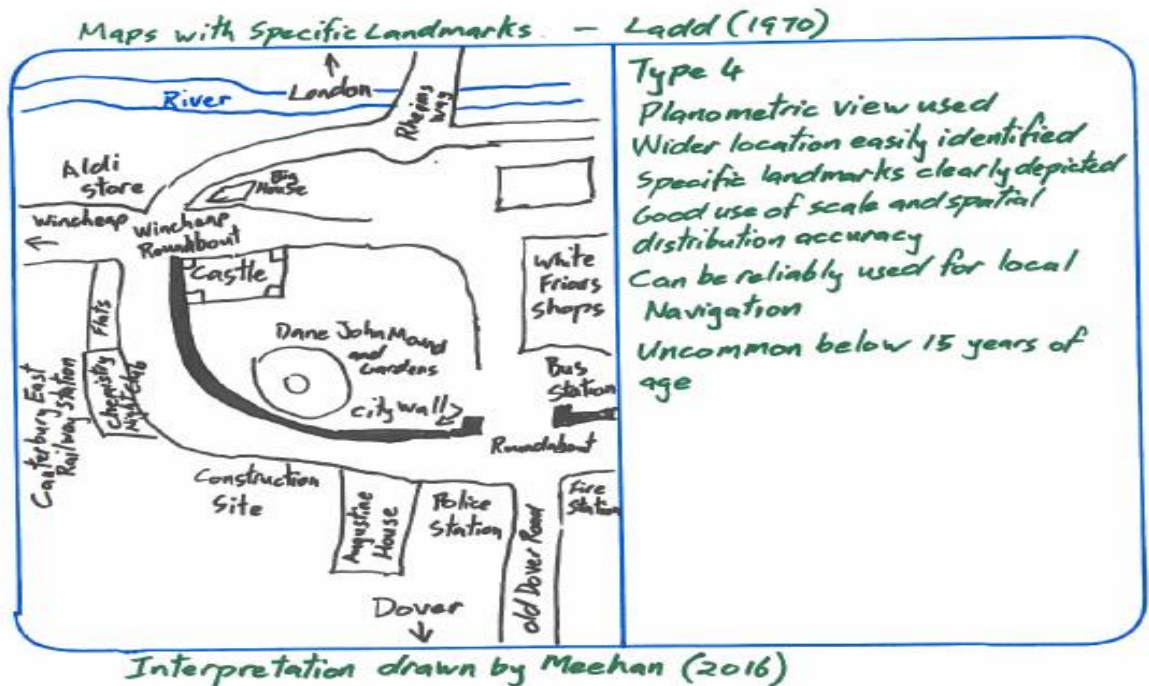 Maps with Specific Landmarks. — Ladd (1970)
London
River
Rheims
Way
Aldi
Store
Big
House
Wincheap
Wincheap
Roundabout
Castle
White
Friars
Shops
Flats
Dane John Mound
and
Gardens
Chemistry
Night Club
Canterbury East
Railway Station
City Wall
Bus
Station
Roundabout
Construction
Site
Augustine
House
Police
Station
Old Dover Road
Fire
Station
Dover
Type 4
Planometric view used
Wider location easily identified
Specific landmarks clearly depicted
Good use of scale and spatial
distribution accuracy
Can be reliably used for local
Navigation
Uncommon below 15 years of
age
Interpretation drawn by Meehan (2016)